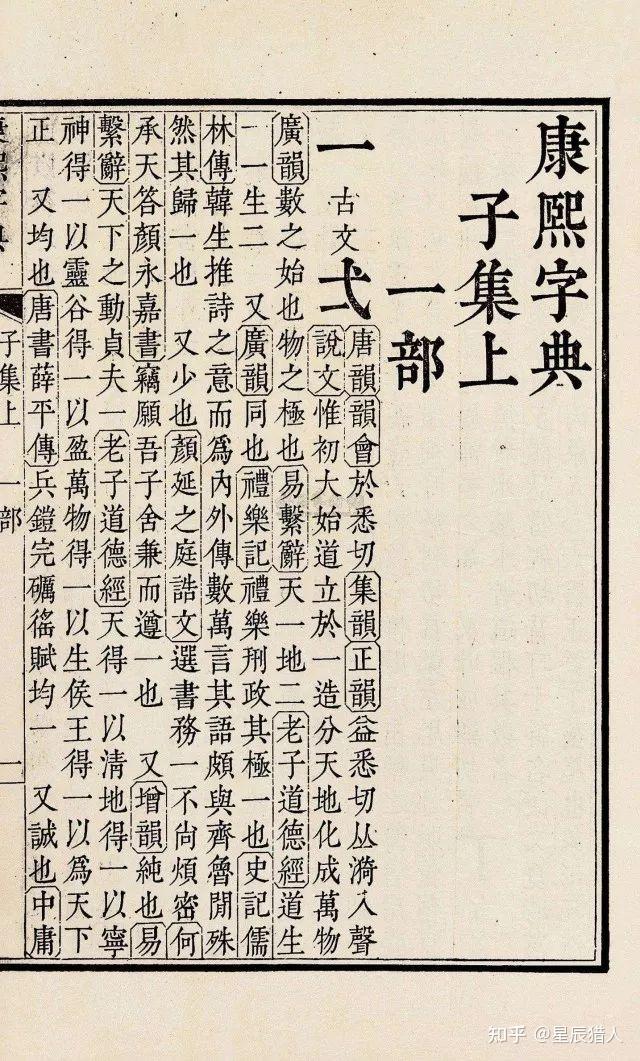 康熙字典
子集上
一部
一 古文 弌
唐韻韻會於悉切集韻正韻益悉切𠀤漪入聲
說文惟初大始道立於一造分天地化成萬物
廣韻數之始也物之極也易繫辭天一地二老子道德經道生
一一生二 又廣韻同也禮樂記禮樂刑政其極一也史記儒
林傳韓生推詩之意而爲內外傳數萬言其語頗與齊魯閒殊
然其歸一也 又少也顏延之庭誥文選書務一不尙煩密何
承天答顏永嘉書竊願吾子舍兼而遵一也 又增韻純也易
繫辭天下之動貞夫一老子道德經天得一以清地得一以寧
神得一以靈谷得一以盈萬物得一以生侯王得一以爲天下
正 又均也唐書薛平傳兵鎧完礪徭賦均一 又誠也中庸
康熙字典 子集上 一部 一
知乎 @星辰猎人